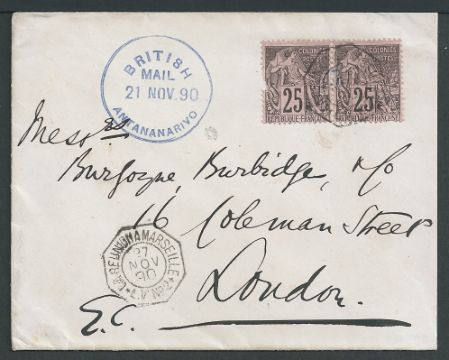 BRITISH
MAIL
21 NOV. 90
ANTANANARIVO
COLONIES
POSTES
25
REPUBLIQUE FRANCAISE
COLONIES
POSTES
25
REPUBLIQUE FRANCAISE
Messrs
Burgoyne, Burbidge, &Co
16 Coleman Street
London.
E.C.
LA REUNION A MARSEILLE
27
NOV
90